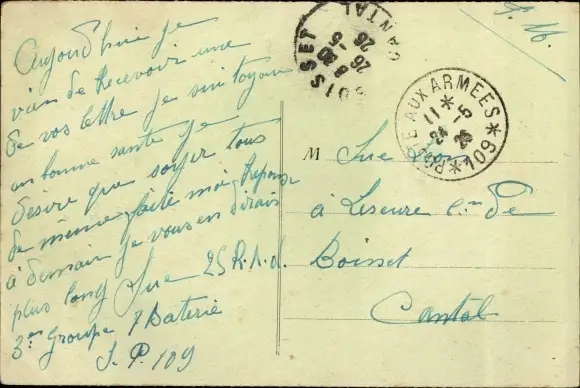 Aujourd'hui je
vien de Recevoir une
de vos lettre je suis toujour
en bonne sante je
désire que soyer tous
de même faite moi Reponse
à demain je vous en dirais
plus long Sue 25 R.A.d.
3em Groupe 7 Baterie
S.P. 109
F. M.
BOISSET
CANTAL
8 30
26 -5
25
POSTE AUX ARMEES
* 109 *
11 *
24 -5
25
M Sue
à Liseure Cne de
Boisset
Cantal